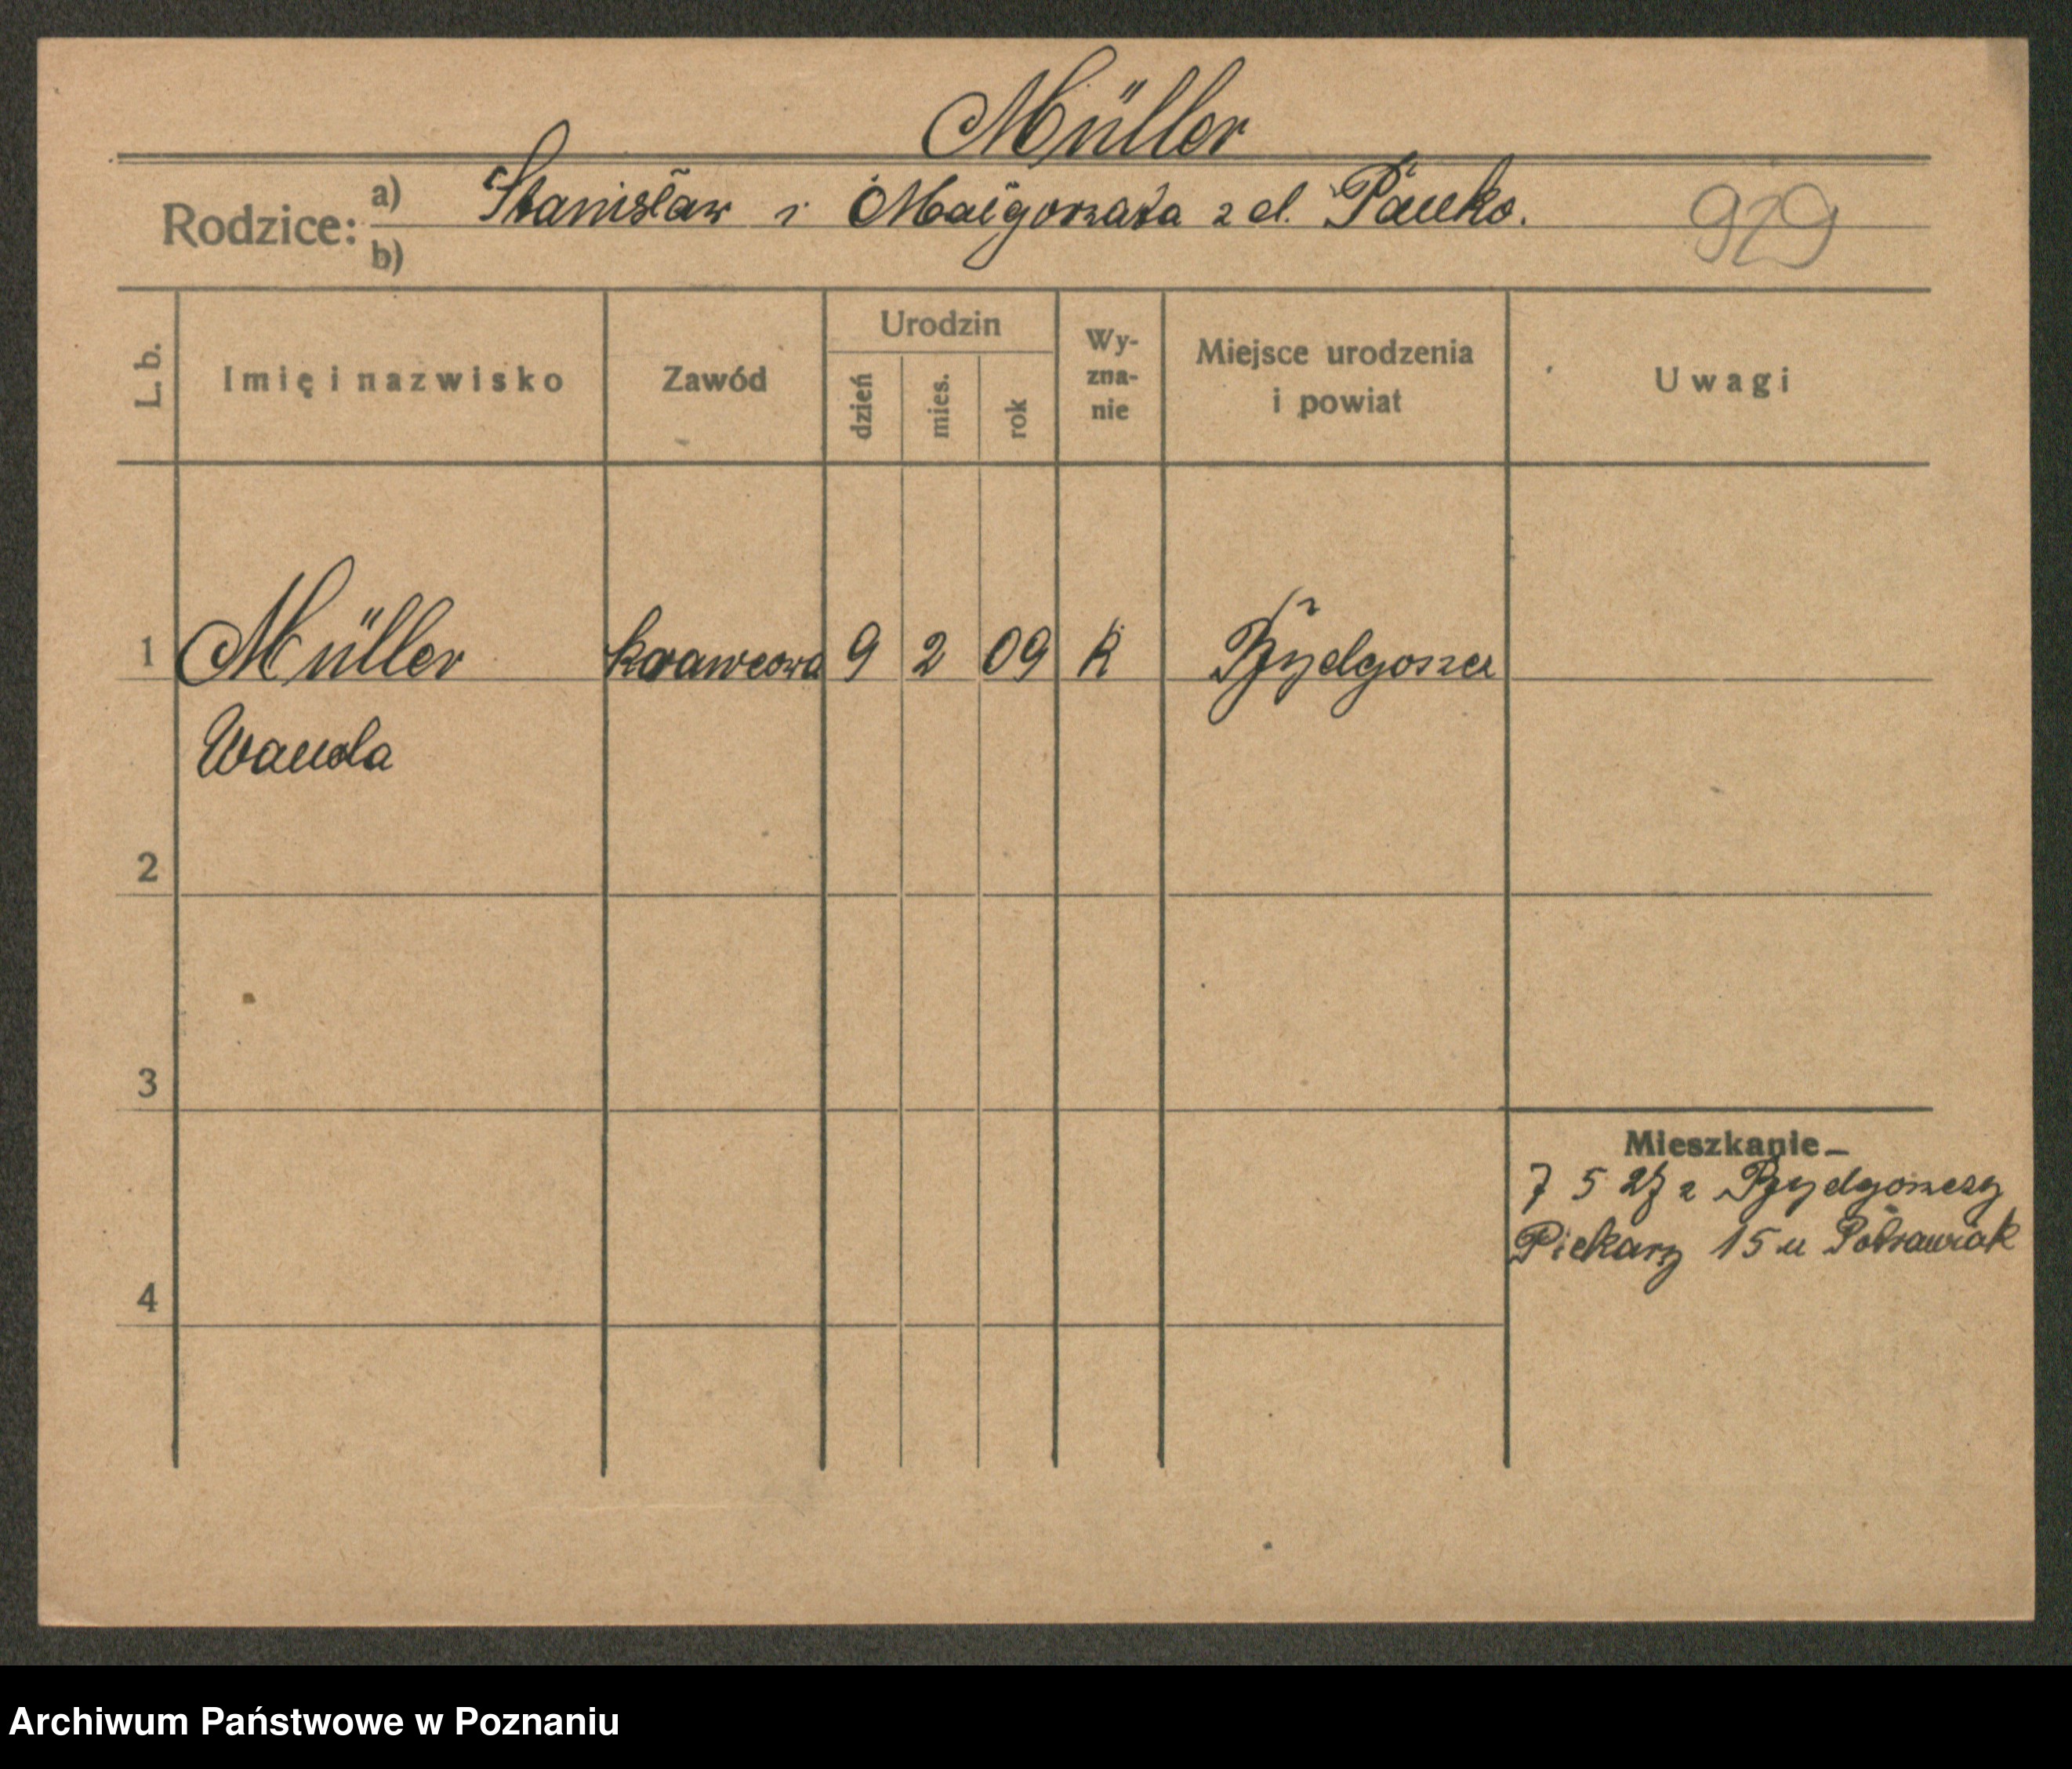 Müller
Rodzice: a) Stanisław i Małgorzata z d. Pauko. 929
b)
L. b. Imię i nazwisko Zawód Urodzin dzień mies. rok Wy-zna-nie Miejsce urodzenia i powiat Uwagi
1 Müller krawcowa 9 2 09 k Bydgoszcz
Wanda
2
3
Mieszkanie
7 5 27 z Bydgoszczy
Piekary 15 u
4
Archiwum Państwowe w Poznaniu